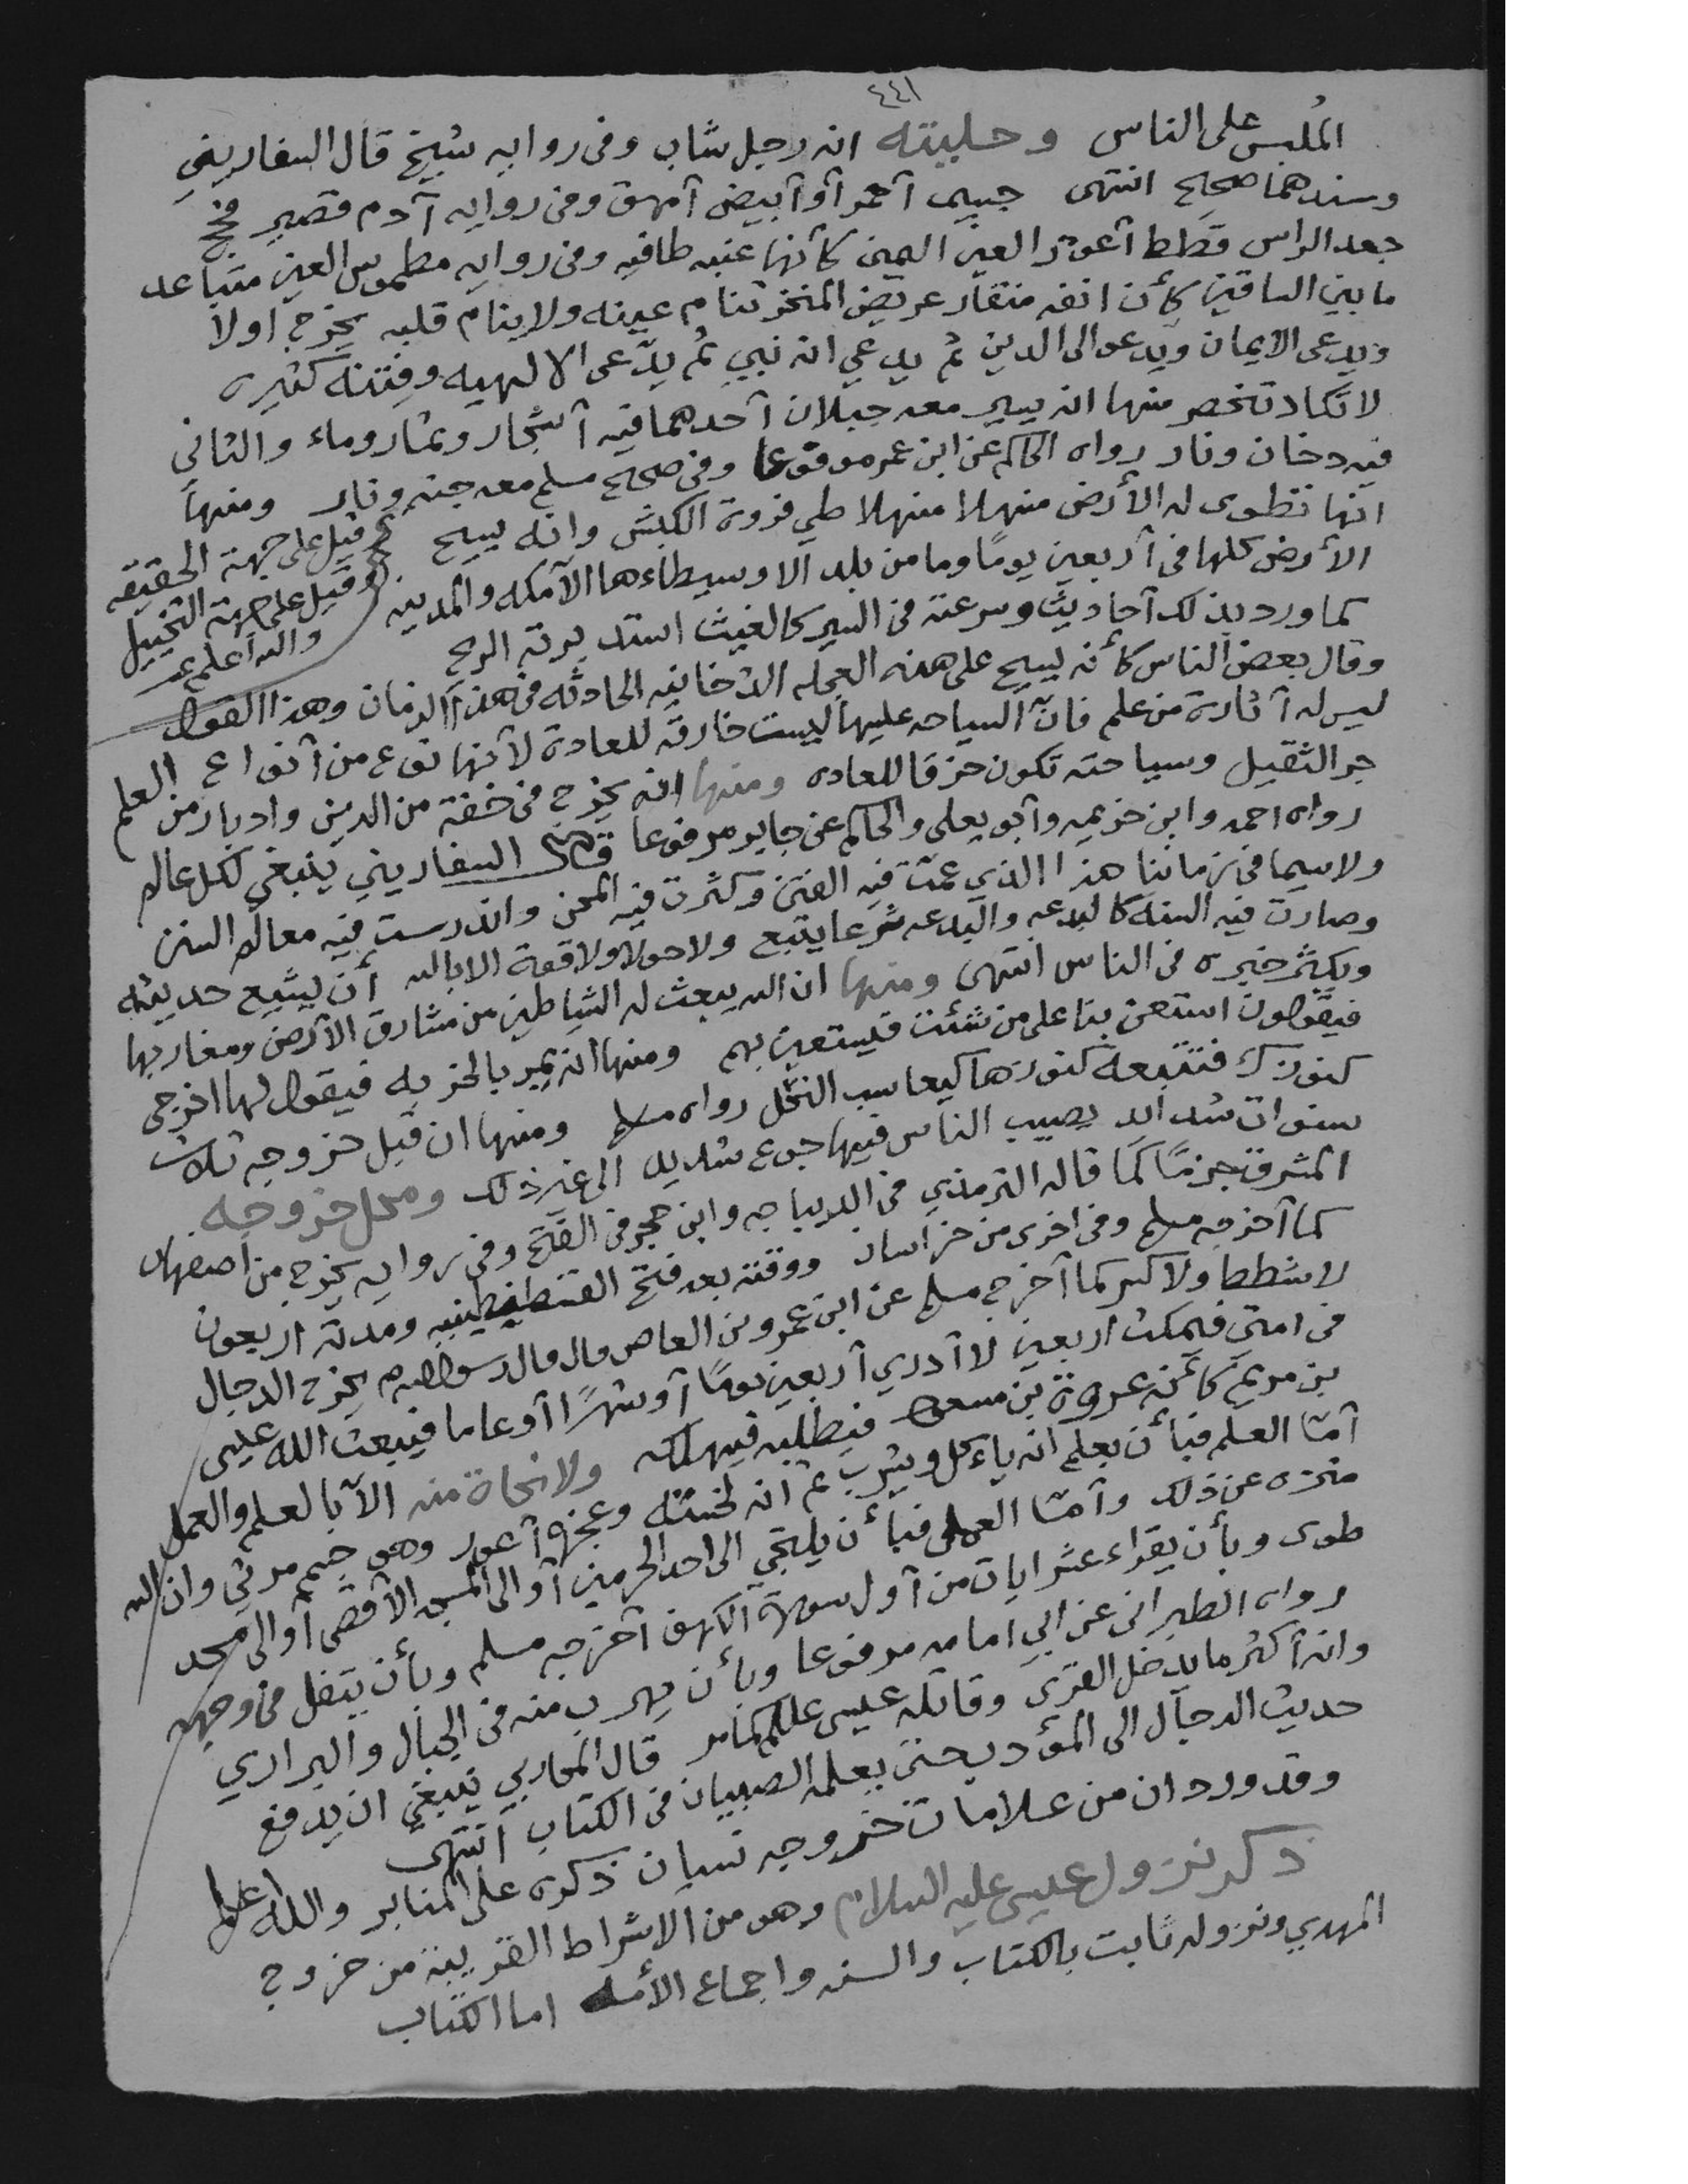 ٤٤١
الملبس على الناس وحليته انه رجل شاب وفى روايه شيخ قال السفاريني
وسندهما صحيح انتهى جسيم آحمر آو آبيض آمهق وفى روايه آدم قصير فحج
جعد الراس قطط آعور العين اليمين كأنها عنبه طافيه وفى روايه مطموس العين متباعد
ما بين الساقين كأن انفه منقار عريض المنخر تنام عينه ولا ينام قلبه يخرج اولا
ويدعى الايمان ويدعو الى الدين ثم يدعي انه نبي ثم يدّعى الالهيه وفتنه كثيره
لا تكاد تنحصر منها انه يسير معه جبلان آحدهما فيه آشجار وثمار وماء والثاني
فيه دخان ونار رواه الحاكم عن ابن عمر موقوعا وفى صحيح مسلم معه جنه ونار ومنها
انها تطوى له الأرض منهلا منهلا طي فروة الكبش وانه يسيح
ثم قيل على جهة الحقيقه
وقيل على جهة التخييل
والله أعلم
الأرض كلها فى آربعين يومًا وما من بلد الا وسيطاءها الآمكه والمدينه
كما ورد بذلك آحاديث وسرعته فى السير كالغيث استدبرته الريح
وقال بعض الناس كأنه يسيح على هذه العجله الدخانيه الحادثه فى هذا الزمان وهذا القول
ليس له آثارة من علم فانّ السياحه عليها ليست خارقه للعادة لآنها نوع من آنواع العلم
جر الثقيل وسياحته تكون خرقا للعاده ومنها انه يخرج فى خفة من الدين وادبار من
رواه احمد وابن خزيمه وآبو يعلى والحاكم عن جابر مرفوعا قال السفاريني ينبغي لكل عالم
ولاسيما فى زماننا هذا الذي عمّت فيه الفتن وكثرت فيه المحن واندرست فيه معالم السنن
وصارت فيه السنه كالبدعه والبدعه شرعا يتبع ولا حولا ولا قوة الا بالله أن يشيع حديثه
ويكثر خبره فى الناس انتهى ومنها ان الله يبعث له الشياطين من مشارق الآرض ومغاربها
فيقولون استعن بنا على من شئت فيستعين بهم ومنها انه يمر بالخربه فيقول لها اخرجى
كنوزك فتتبعه كنوزها كيعاسب النحل رواه مسلم ومنها ان قبل خروجه ثلاث
سنوات شدايد يصيب الناس فيها جوع شديد الى غير ذلك ومحل خروجه
المشرق جزمًا كما قاله الترمذي فى الديباجه وابن حجر فى الفتح وفى روايه يخرج من اصفهان
كما آخرجه مسلم وفى اخرى من خراسان ووقته بعد فتح القسطنطينيه ومدته اربعون
لا شططا ولا كسر كما آخرج مسلم عن ابن عمرو بن العاص قال قال رسول الله م يخرج الدجال
فى امتي فيمكث اربعين لا آدري آربعين يومًا آو شهرًا آو عاما فيبعث الله عيسى
بن مريم كأنه عروة بن مسعود فيطلبه فيهلكه ولا نجاة منه الآ بالعلم والعمل
آمّا العلم فبأن يعلم انه ياءكل ويشرب ثم انه لخسته وعجزه آعور وهو جسم مرئي وان الله
منزه عن ذلك وآمّا العمل فبأن يلتجي الى احد الحرمين آو الى المسجد الآقصى آو الى مسجد
طوى وبأن يقراء عشر ايات من آول سورة الكهف آخرجه مسلم وبأن يتفل فى وجهه
رواه الطبرانى عن ابي امامه مرفوعا وبأن يهرب منه فى الجبال والبراري
وانه آكثر ما يدخل القرى وقاتله عيسى عللم كما مر قال المحاربي ينبغي ان يدفع
حديث الدجال الى المؤدب حتى يعلمه الصبيان فى الكتاب انتهى
وقد ورد ان من علامات خروجه نسيان ذكره على المنابر والله اعلم
ذكر نزول عيسى عليه السلام وهو من الاشراط القريبة من خروج
المهدي ونزوله ثابت بالكتاب والسنه واجماع الأمه اما الكتاب